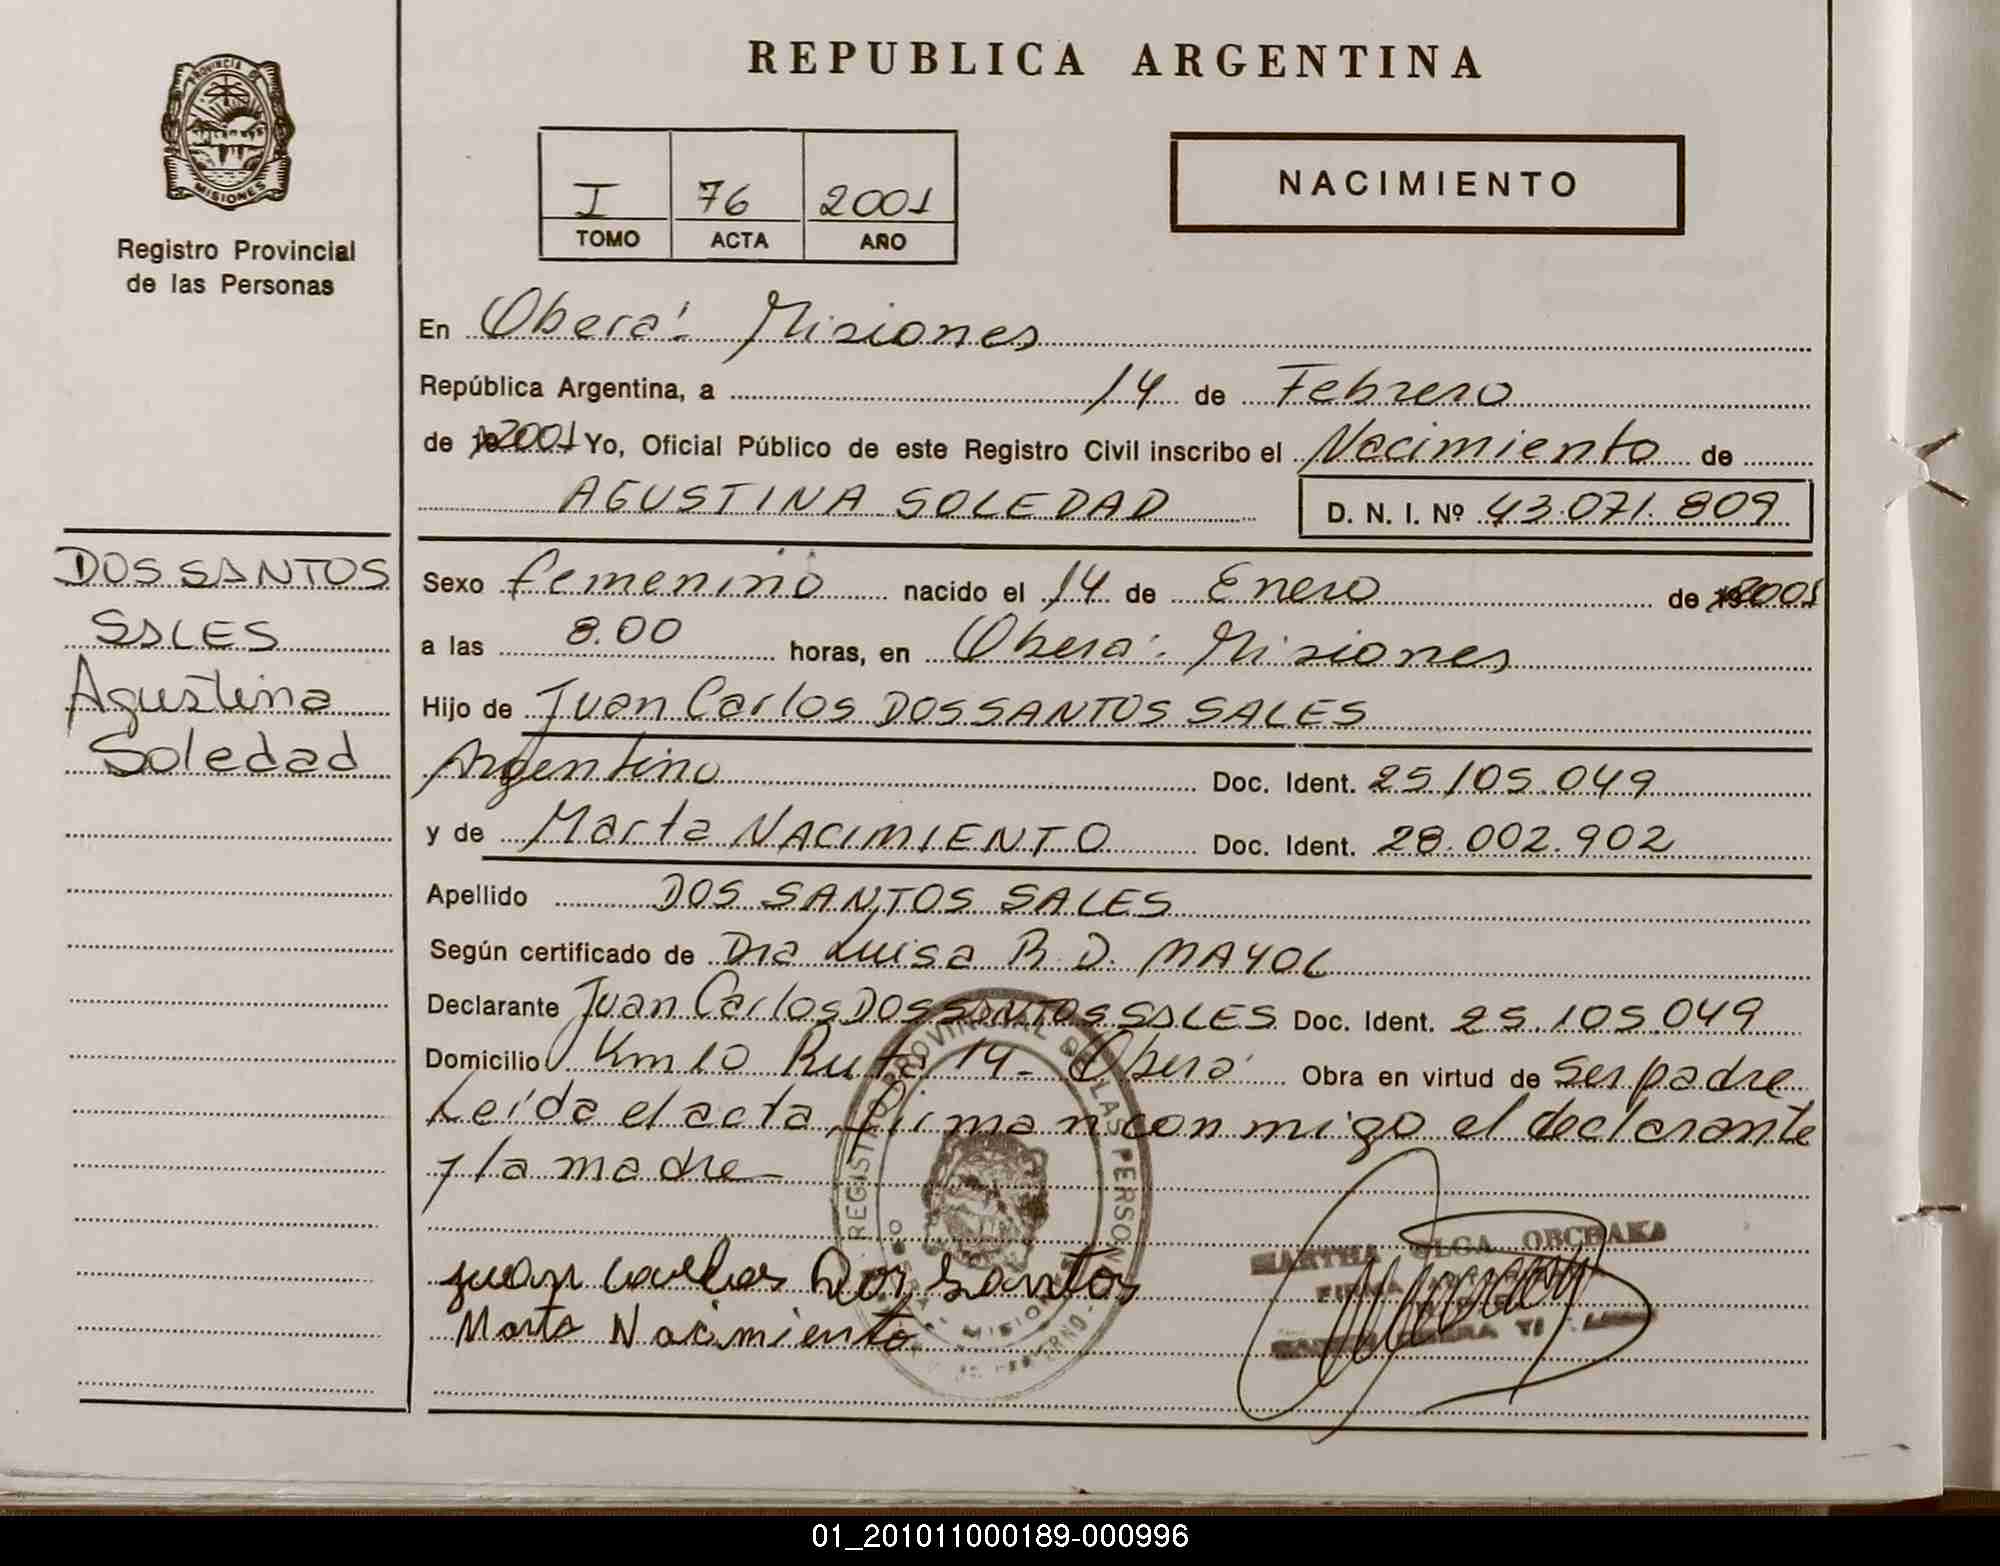 PROVINCIA DE
MISIONES
Registro Provincial
de las Personas
REPUBLICA ARGENTINA
I 76 2001
TOMO ACTA AÑO
NACIMIENTO
En Oberá: Misiones
República Argentina, a 14 de Febrero
de 19 2001 Yo, Oficial Público de este Registro Civil inscribo el Nacimiento de
AGUSTINA SOLEDAD D. N. I. Nº 43.071.809
DOS SANTOS
SALES
Agustina
Soledad
Sexo femenino nacido el 14 de Enero de 19 2001
a las 8.00 horas, en Oberá: Misiones
Hijo de Juan Carlos DOS SANTOS SALES
Argentino Doc. Ident. 25.105.049
y de Marta NACIMIENTO Doc. Ident. 28.002.902
Apellido DOS SANTOS SALES
Según certificado de Dra Luisa R. D. MAYOL
Declarante Juan Carlos DOS SANTOS SALES Doc. Ident. 25.105.049
Domicilio Km 10 Ruta 14- Oberá Obra en virtud de ser padre
Leída el acta, firman conmigo el declarante
y la madre-
REGISTRO PROVINCIAL DE LAS PERSONAS
MISIONES
Juan Carlos Dos Santos
Marta Nacimiento
MARTHA OLGA
01_201011000189-000996